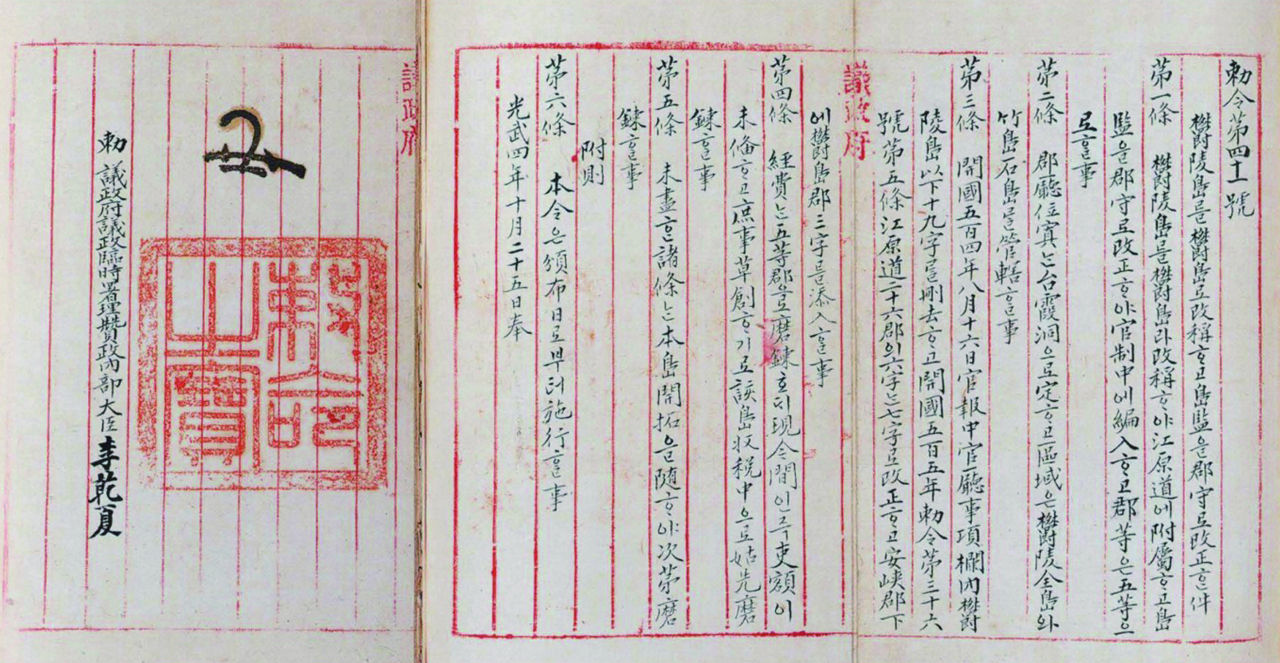 勅令第四十一號
欝陵島를欝島로改稱ᄒᆞ고島監을郡守로改正ᄒᆞᆫ件
第一條 欝陵島를欝島라改稱ᄒᆞ야江原道에附屬ᄒᆞ고島
監을郡守로改正ᄒᆞ야官制中에編入ᄒᆞ고郡等은五等으
로ᄒᆞᆯ事
第二條 郡廳位寘는台霞洞으로定ᄒᆞ고區域은欝陵全島와
竹島石島를管轄ᄒᆞᆯ事
第三條 開國五百四年八月十六日官報中官廳事項欄內欝
陵島以下十九字를刪去ᄒᆞ고開國五百五年勅令第三十六
號第五條江原道二十六郡의六字는七字로改正ᄒᆞ고安峽郡下
議政府
에欝島郡三字를添入ᄒᆞᆯ事
第四條 經費는五等郡으로磨鍊호ᄃᆡ現今間인즉吏額이
未備ᄒᆞ고庶事草創ᄒᆞ기로該島收稅中으로姑先磨
鍊ᄒᆞᆯ事
第五條 未盡ᄒᆞᆫ諸條는本島開拓을隨ᄒᆞ야次第磨
鍊ᄒᆞᆯ事
附則
第六條 本令은頒布日로부터施行ᄒᆞᆯ事
光武四年十月二十五日奉
議政府
勅命之寶
勅 議政府議政臨時署理贊政內部大臣李乾夏